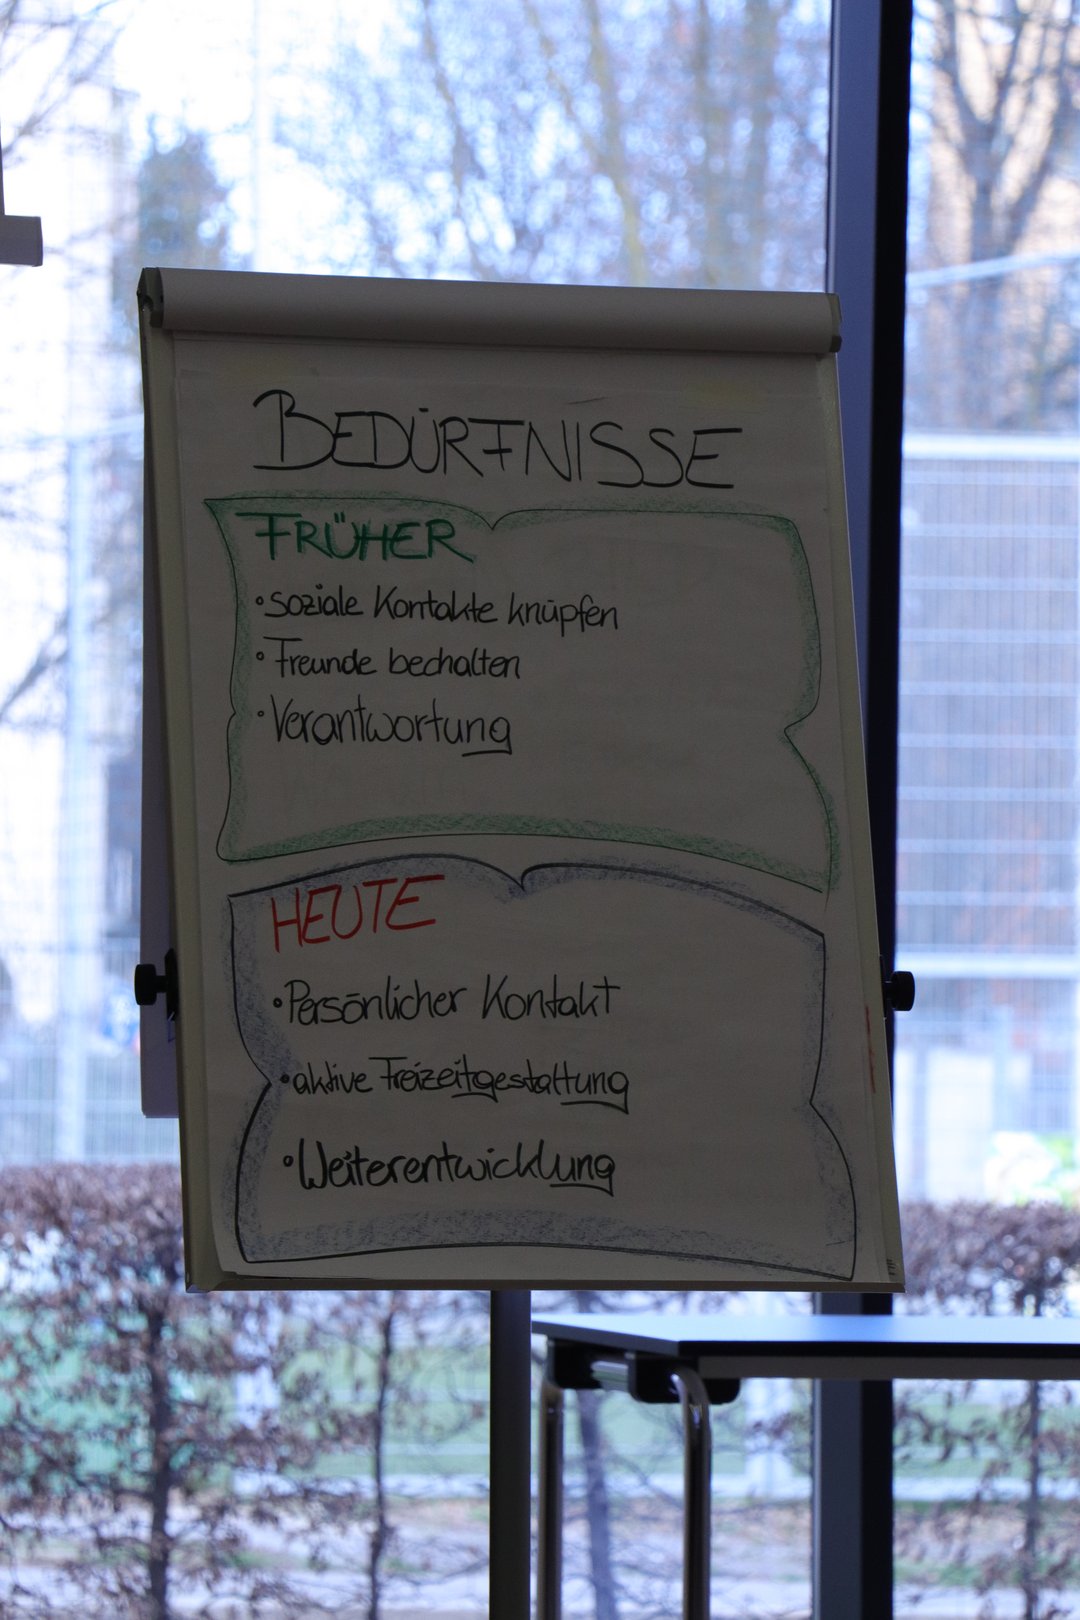 BEDÜRFNISSE
FRÜHER
• soziale Kontakte knüpfen
• Freunde bechalten
• Verantwortung
HEUTE
• Persönlicher Kontakt
• aktive Freizeitgestaltung
• Weiterentwicklung